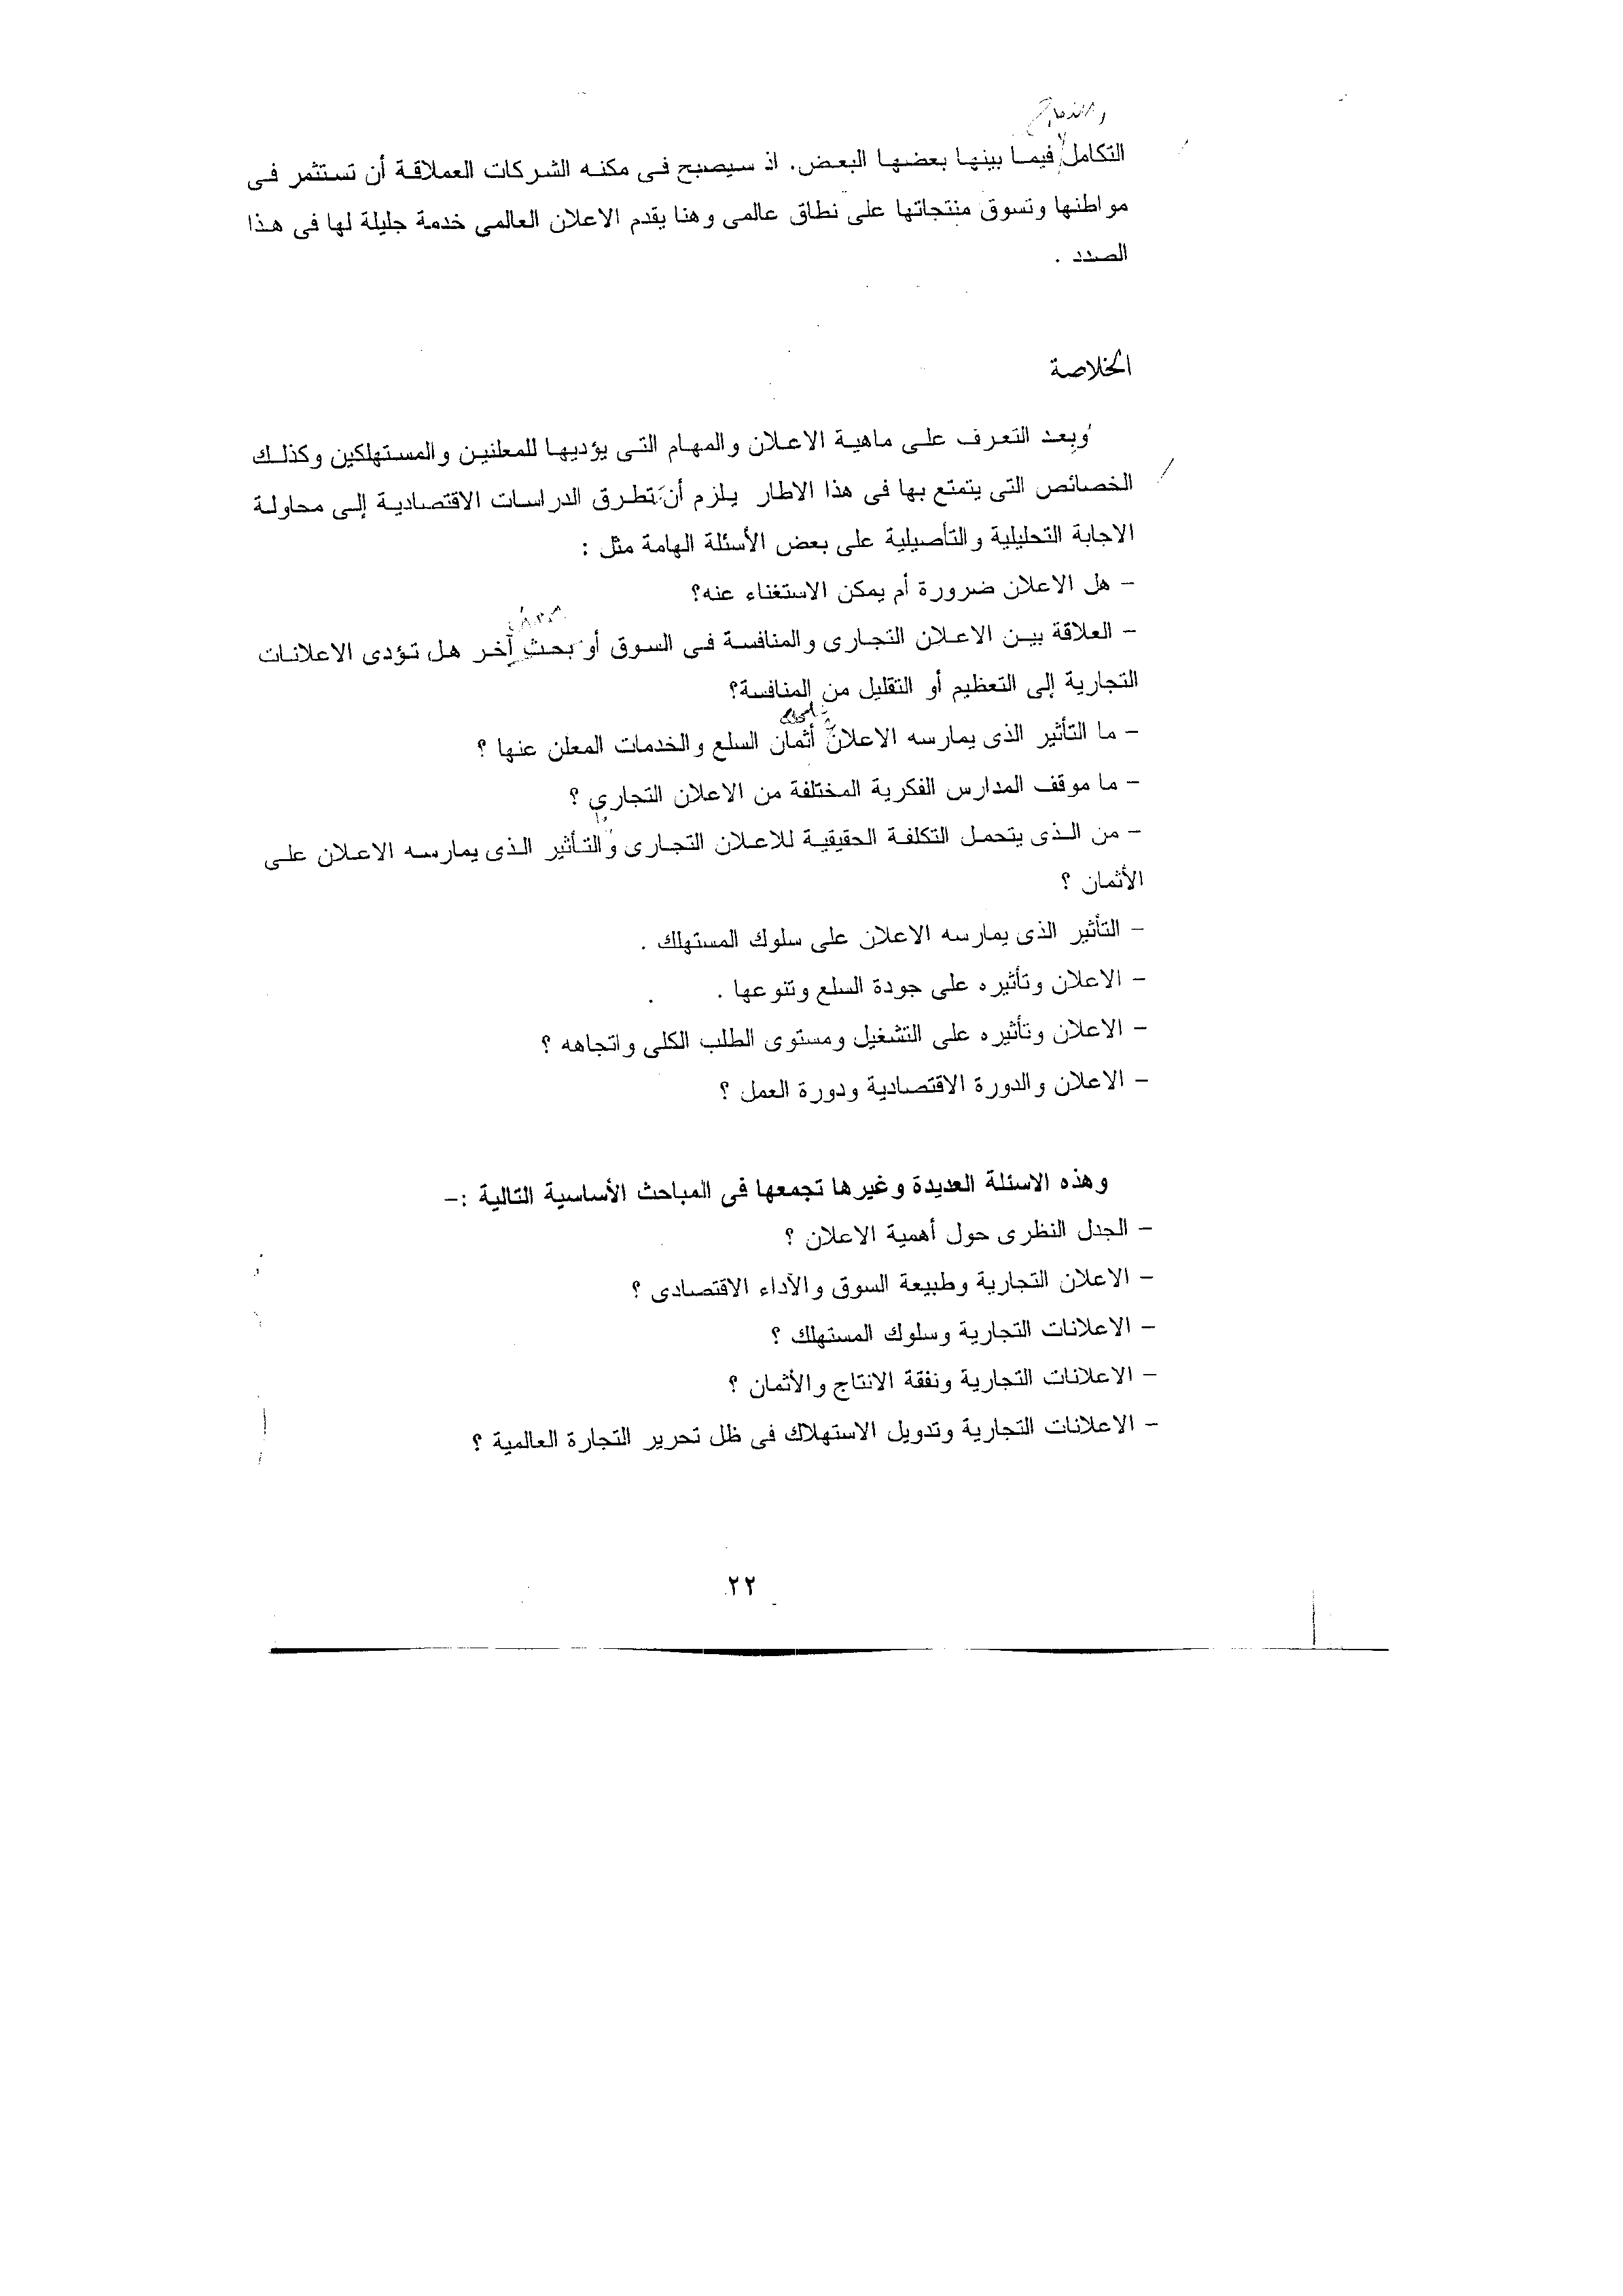 والاندماج
التكامل فيما بينها بعضها البعض. اذ سيصبح فى مكنه الشركات العملاقة أن تستثمر فى
مواطنها وتسوق منتجاتها على نطاق عالمى وهنا يقدم الاعلان العالمى خدمة جليلة لها فى هذا
الصدد .
الخلاصة
وبعد التعرف على ماهية الاعلان والمهام التى يؤديها للمعلنين والمستهلكين وكذلك
الخصائص التى يتمتع بها فى هذا الاطار يلزم أن تتطرق الدراسات الاقتصادية إلى محاولة
الاجابة التحليلية والتأصيلية على بعض الأسئلة الهامة مثل :
- هل الاعلان ضرورة أم يمكن الاستغناء عنه؟
- العلاقة بين الاعلان التجارى والمنافسة فى السوق أو بحث آخر هل تؤدى الاعلانات
التجارية إلى التعظيم أو التقليل من المنافسة؟
- ما التأثير الذى يمارسه الاعلان أثمان السلع والخدمات المعلن عنها ؟
- ما موقف المدارس الفكرية المختلفة من الاعلان التجارى ؟
- من الذى يتحمل التكلفة الحقيقية للاعلان التجارى والتأثير الذى يمارسه الاعلان على
الأثمان ؟
- التأثير الذى يمارسه الاعلان على سلوك المستهلك .
- الاعلان وتأثيره على جودة السلع وتنوعها .
- الاعلان وتأثيره على التشغيل ومستوى الطلب الكلى واتجاهه ؟
- الاعلان والدورة الاقتصادية ودورة العمل ؟
وهذه الاسئلة العديدة وغيرها تجمعها فى المباحث الأساسية التالية :-
- الجدل النظرى حول أهمية الاعلان ؟
- الاعلان التجارية وطبيعة السوق والآداء الاقتصادى ؟
- الاعلانات التجارية وسلوك المستهلك ؟
- الاعلانات التجارية ونفقة الانتاج والأثمان ؟
- الاعلانات التجارية وتدويل الاستهلاك فى ظل تحرير التجارة العالمية ؟
٢٢